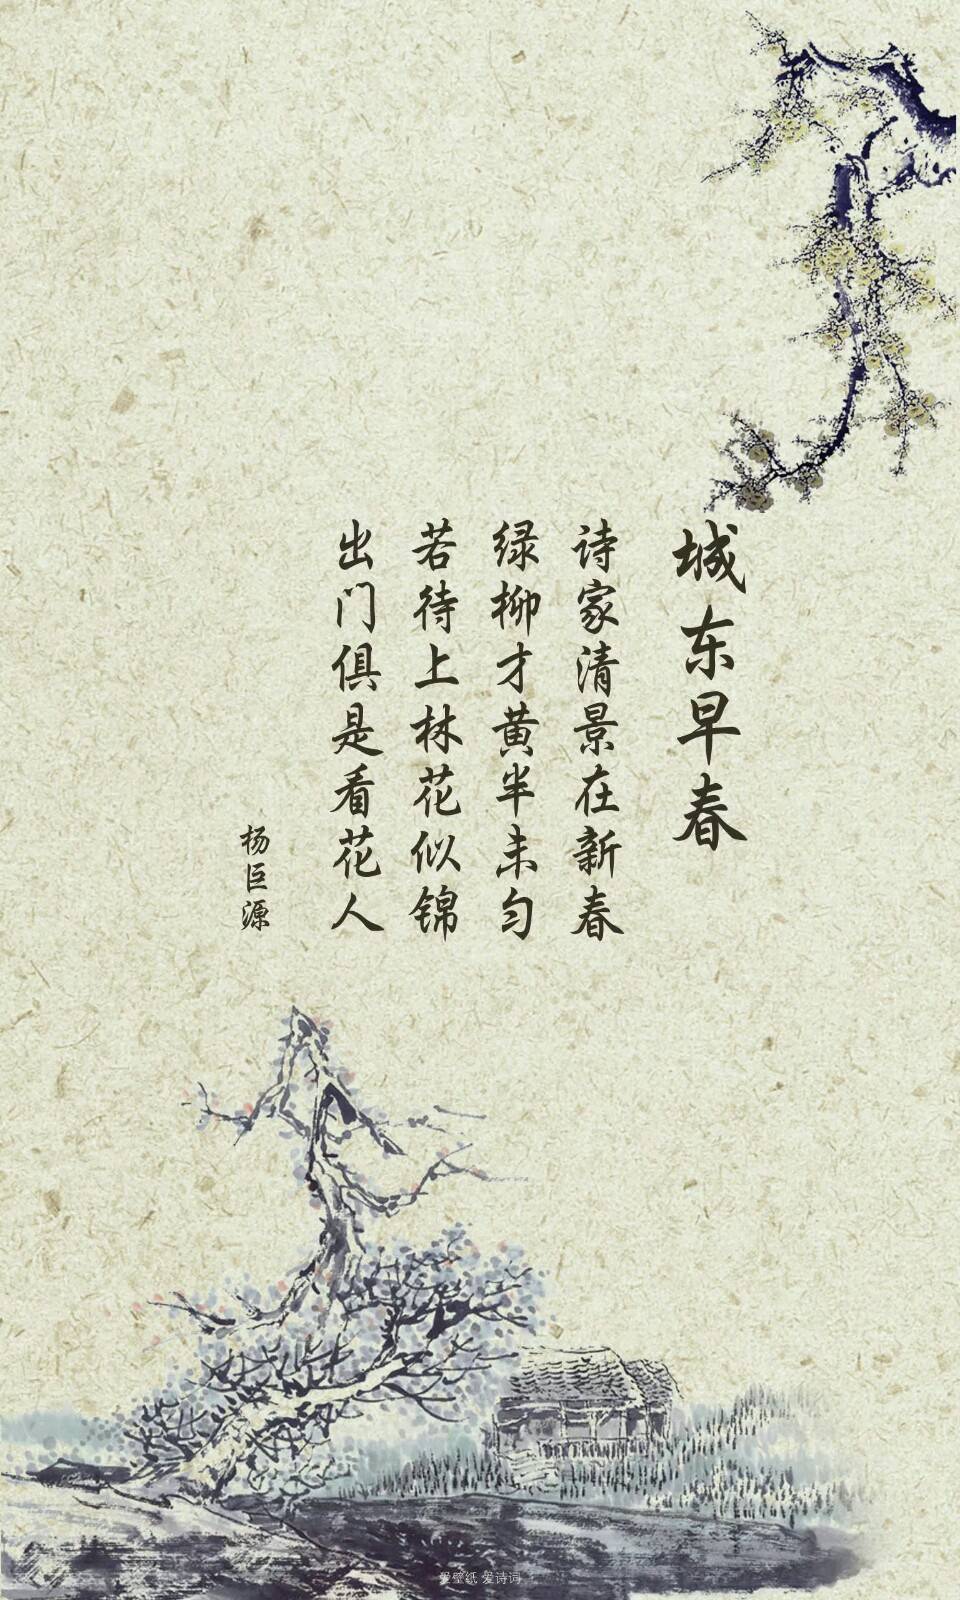 城东早春
诗家清景在新春
绿柳才黄半未匀
若待上林花似锦
出门俱是看花人
杨巨源
爱壁纸 爱诗词